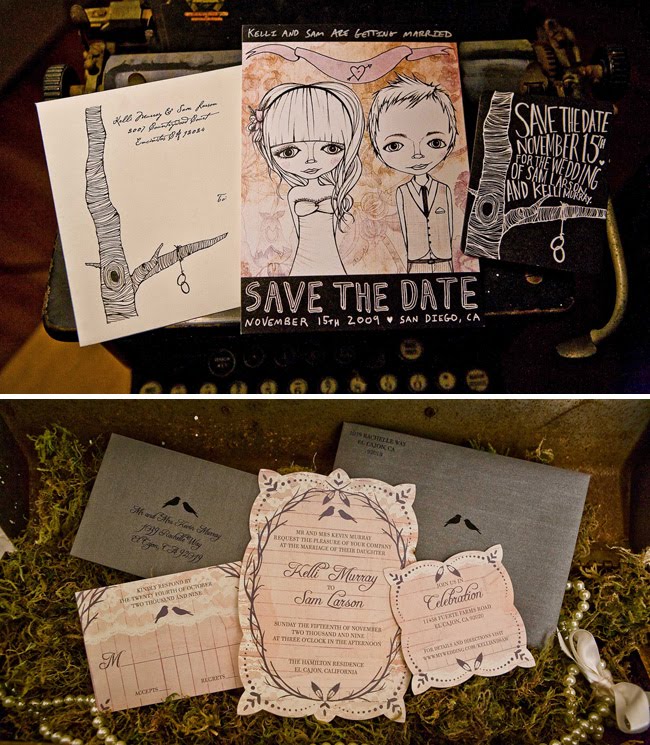 Kelli Murray & Sam Larson
2007 Countrywood Court
Encinitas CA 92024
To:
KELLI AND SAM ARE GETTING MARRIED
SAVE THE DATE
NOVEMBER 15TH 2009 ♥ SAN DIEGO, CA
SAVE THE DATE
NOVEMBER 15TH
FOR THE WEDDING
OF SAM LARSON
AND KELLI MURRAY.
Mr and Mrs Kevin Murray
1539 Rachelle Way
El Cajon, CA
RACHELLE WAY
EL CAJON, CA
92019
KINDLY RESPOND BY
THE TWENTY FOURTH OF OCTOBER
TWO THOUSAND AND NINE
M
ACCEPTS
REGRETS
MR AND MRS KEVIN MURRAY
REQUEST THE PLEASURE OF YOUR COMPANY
AT THE MARRIAGE OF THEIR DAUGHTER
Kelli Murray
TO
Sam Larson
SUNDAY THE FIFTEENTH OF NOVEMBER
TWO THOUSAND AND NINE
AT THREE O'CLOCK IN THE AFTERNOON
THE HAMILTON RESIDENCE
EL CAJON, CALIFORNIA
JOIN US IN
Celebration
FUERTE FARMS ROAD
EL CAJON, CA 92020
FOR DETAILS AND DIRECTIONS VISIT